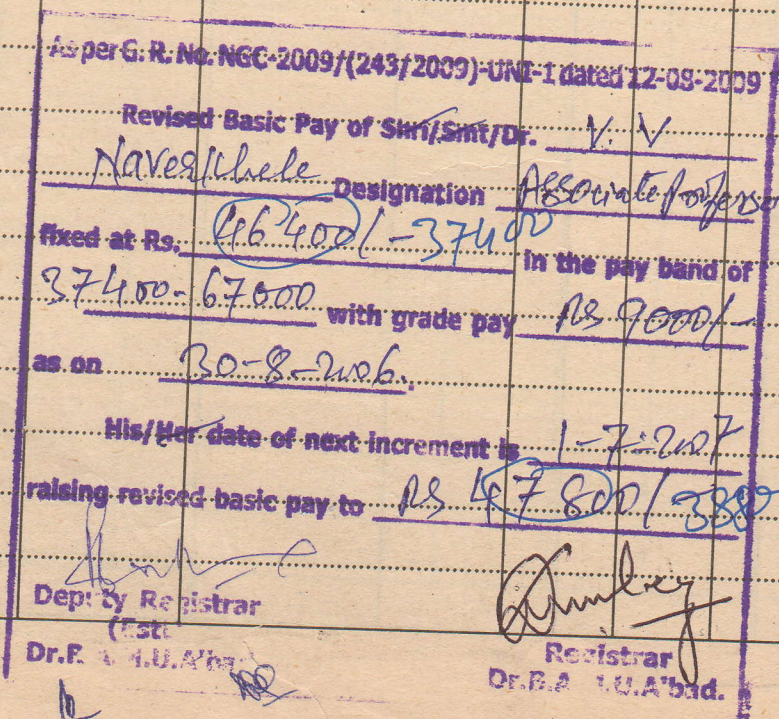 As per G. R. No. NGC-2009/(243/2009)-UNI-1 dated 12-08-2009
Revised Basic Pay of Shri/Smt/Dr. V. V
Designation Associate Professo
fixed at Rs. 46400/- 37400 in the pay band of
37400-67000 with grade pay Rs 9000/-
as on 30-8-2006.
His/Her date of next increment is 1-7-2007
raising revised basic pay to Rs 47800/ 3880
Deputy Registrar
(Estt
Registrar
Dr.B.A .U.A'bad.